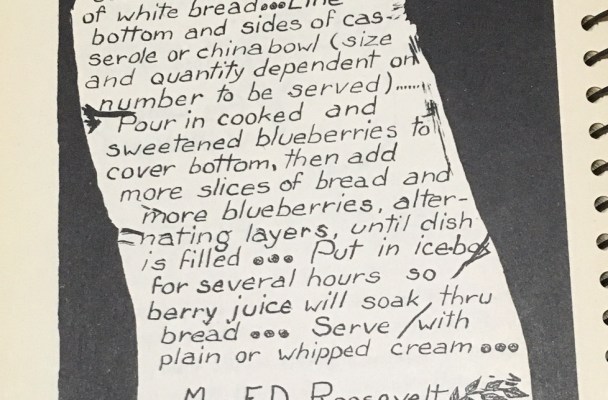 of white bread...Line
bottom and sides of cas-
serole or china bowl (size
and quantity dependent on
number to be served)......
Pour in cooked and
sweetened blueberries to
cover bottom, then add
more slices of bread and
more blueberries, alter-
nating layers, until dish
is filled ... Put in icebox
for several hours so
berry juice will soak thru
bread ... Serve with
plain or whipped cream ...
F.D. Roosevelt